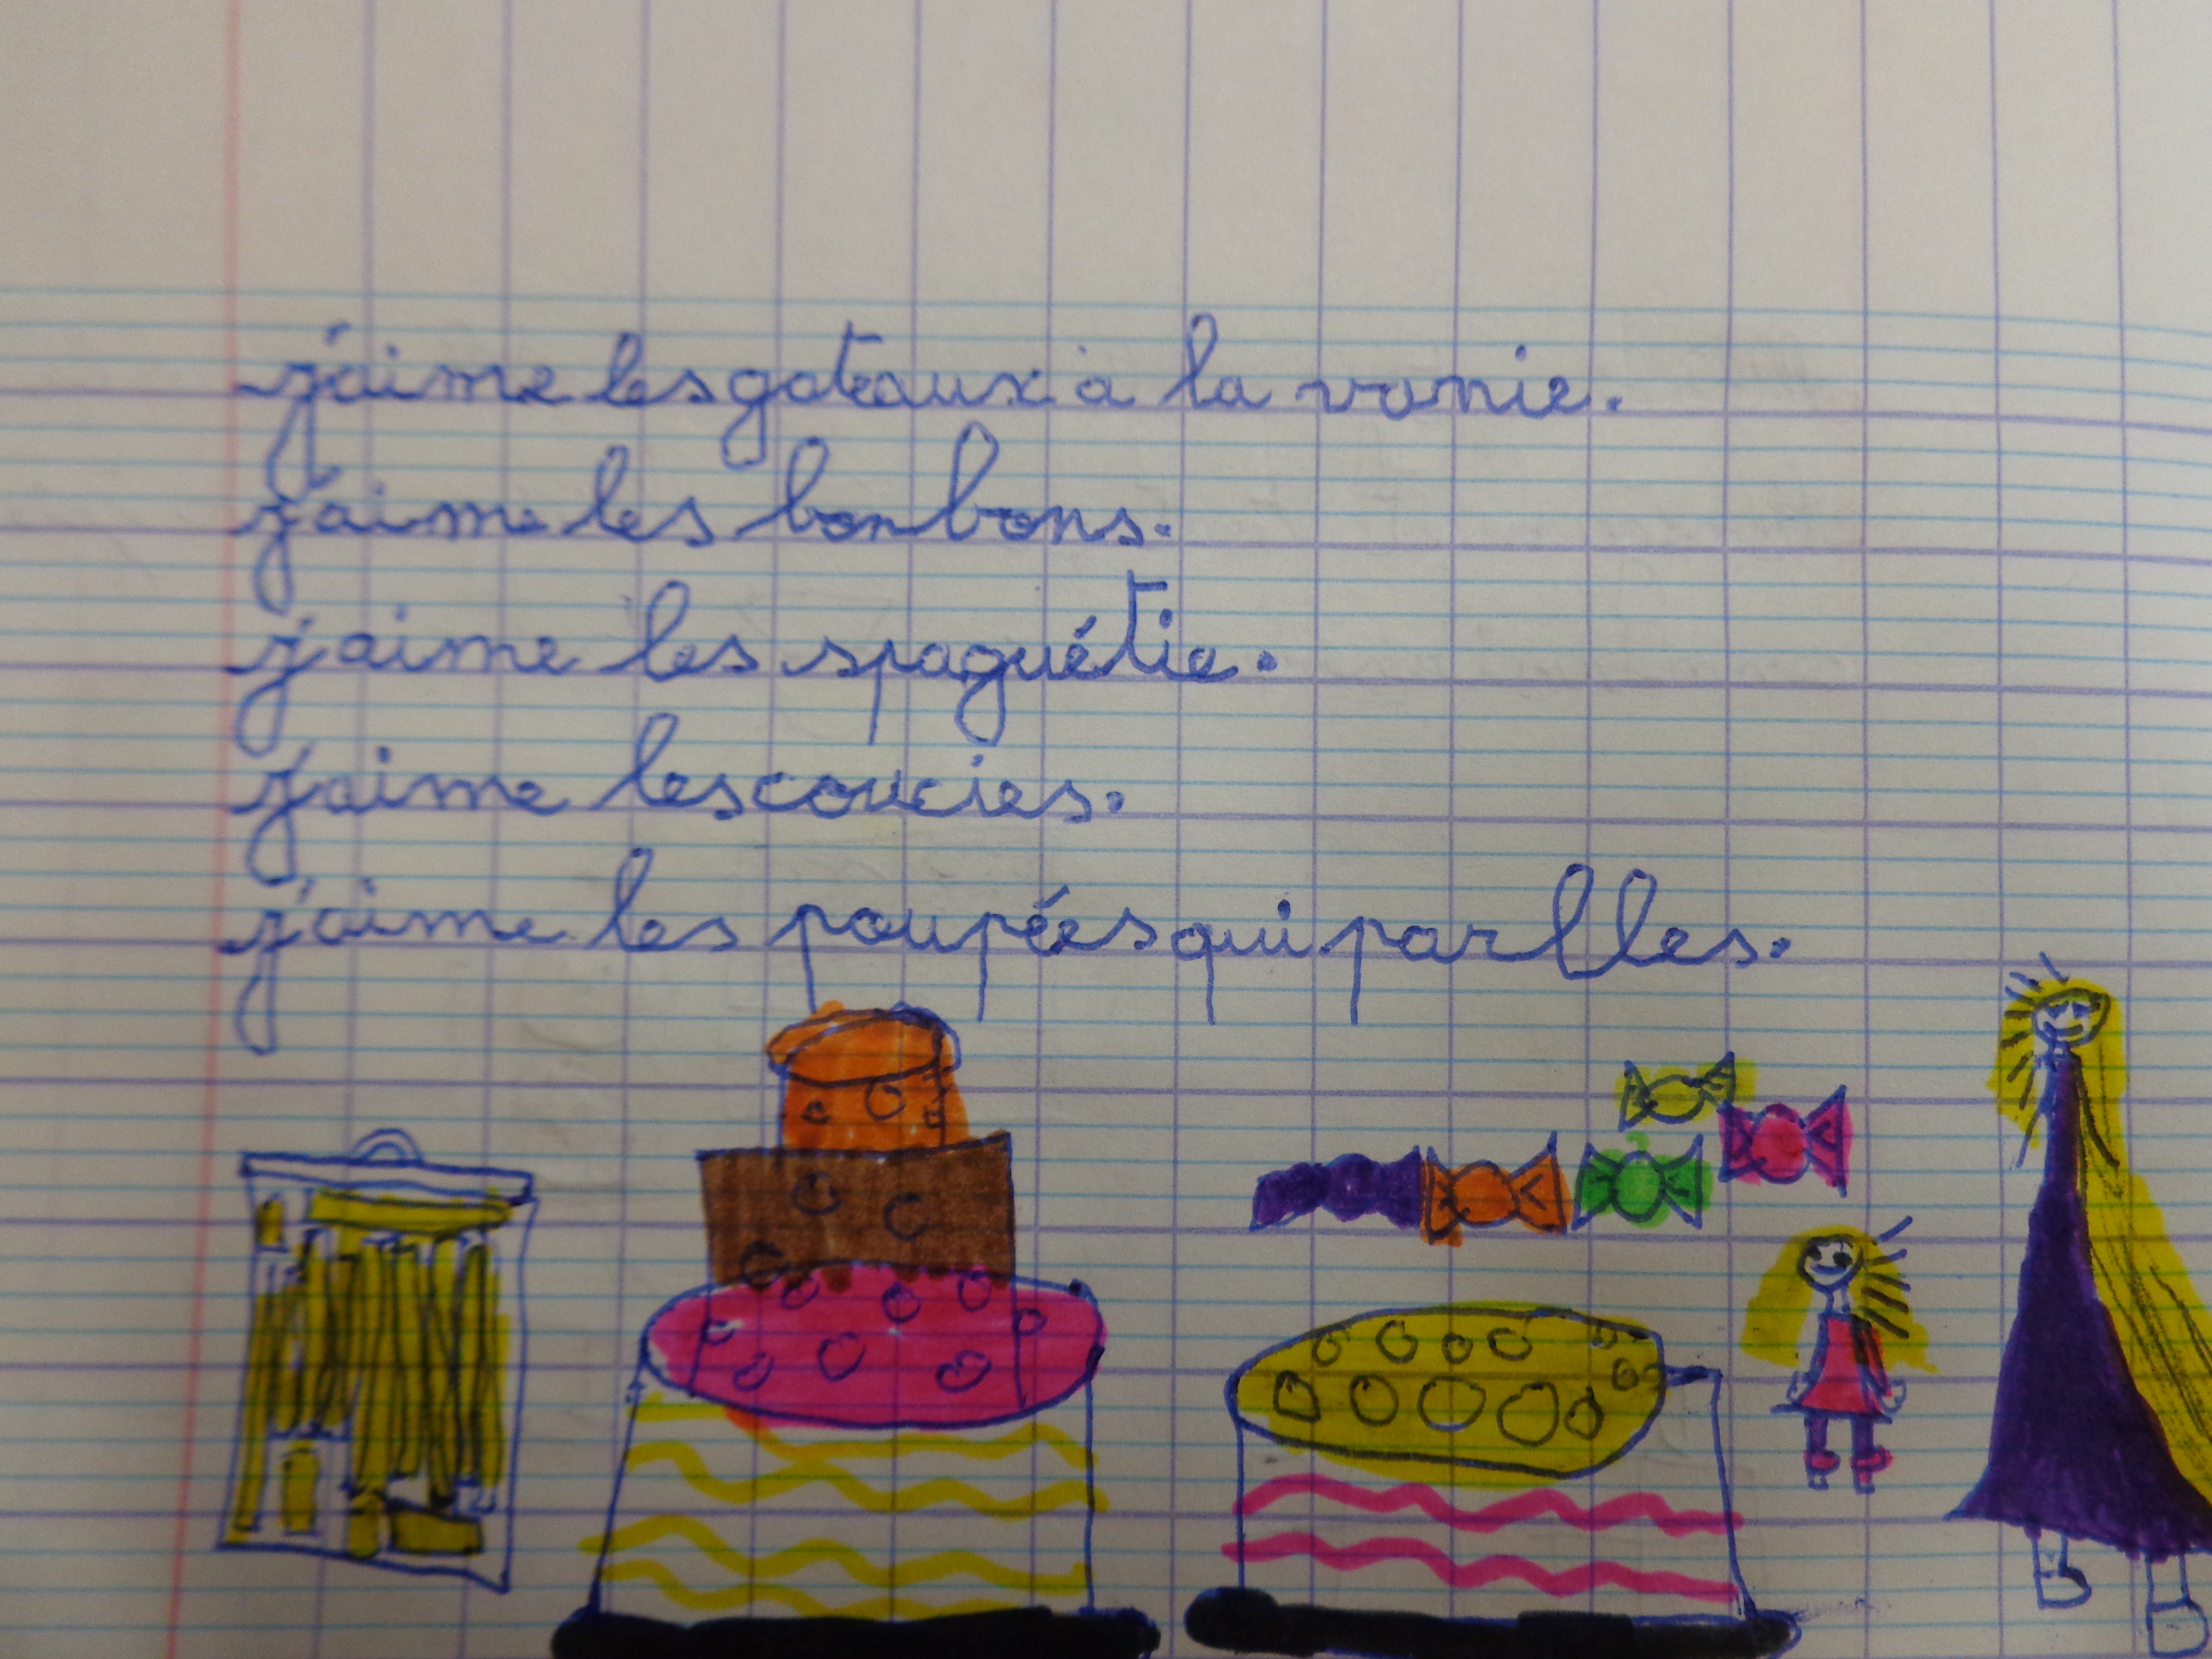 j'aime les gateaux à la vanie.
j'aime les bonbons.
j'aime les spaguétie.
j'aime les coucies.
j'aime les poupées qui parlles.